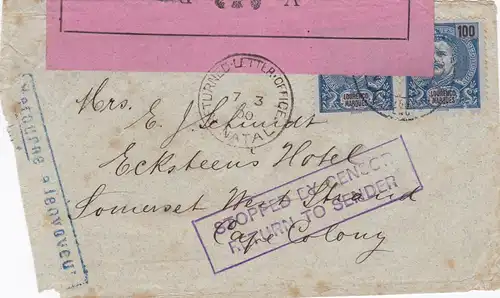 V
100
LOURENÇO
MARQUES
LOURENÇO
MARQUES
RETURNED LETTER OFFICE
7 3
00
NATAL
Mrs. E. J. Schmidt
Ecksteens Hotel
Somerset West Strand
Cape Colony
STOPPED BY CENSOR
RETURN TO SENDER